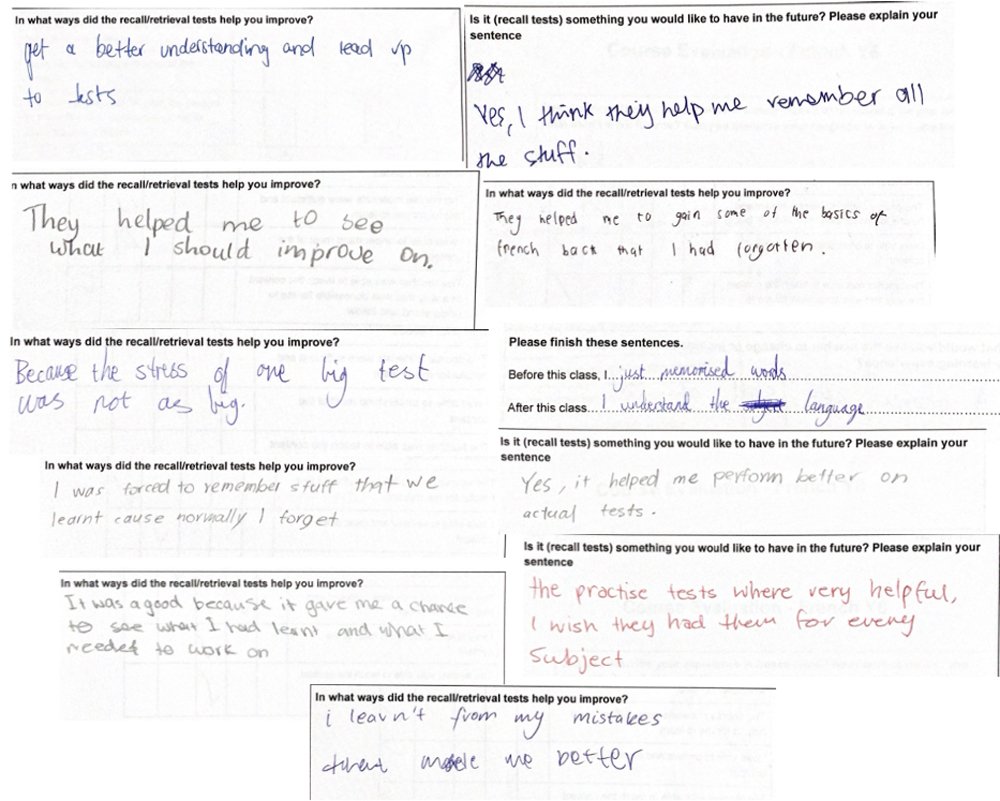 In what ways did the recall/retrieval tests help you improve?
get a better understanding and read up
to tests
Is it (recall tests) something you would like to have in the future? Please explain your
sentence
Yes, I think they help me remember all
the stuff.
n what ways did the recall/retrieval tests help you improve?
They helped me to see
what I should improve on.
In what ways did the recall/retrieval tests help you improve?
They helped me to gain some of the basics of
french back that I had forgotten.
In what ways did the recall/retrieval tests help you improve?
Because the stress of one big test
was not as big.
Please finish these sentences.
Before this class, I...just memorised words
After this class....I understand the language
In what ways did the recall/retrieval tests help you improve?
I was forced to remember stuff that we
learnt cause normally I forget
Is it (recall tests) something you would like to have in the future? Please explain your
sentence
Yes, it helped me perform better on
actual tests.
In what ways did the recall/retrieval tests help you improve?
It was a good because it gave me a chance
to see what I had learnt and what I
needed to work on
Is it (recall tests) something you would like to have in the future? Please explain your
sentence
the practise tests where very helpful,
I wish they had them for every
subject
In what ways did the recall/retrieval tests help you improve?
i learn't from my mistakes
that made me better